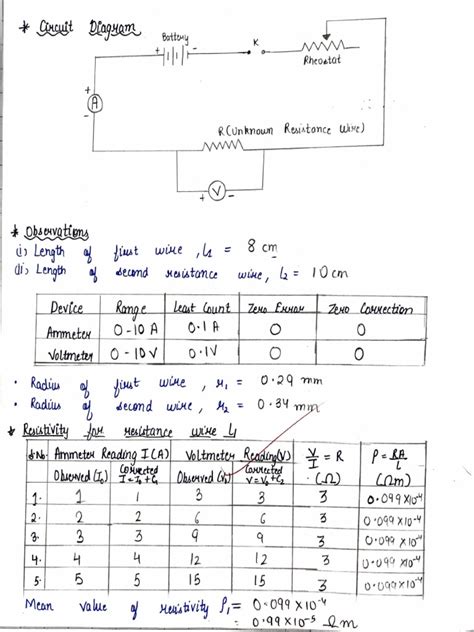 * Circuit Diagram
Battery
+ -
K
Rheostat
+
A
-
R (Unknown Resistance Wire)
+ V -
* Observations
(i) Length of first wire, L1 = 8 cm
(ii) Length of second resistance wire, L2 = 10 cm
Device Range Least Count Zero Error Zero Correction
Ammeter 0-10 A 0.1 A 0 0
Voltmeter 0-10 V 0.1V 0 0
• Radius of first wire, r1 = 0.29 mm
• Radius of second wire, r2 = 0.34 mm
* Resistivity for resistance wire L1
S.No. Ammeter Reading I (A) Voltmeter Reading (V) V/I = R (Ω) ρ = RA/L (Ωm)
Observed (I0) Corrected I = I0 + C1 Observed (V0) Corrected V = V0 + C2
1. 1 1 3 3 3 0.099 x 10-4
2. 2 2 6 6 3 0.099 x 10-4
3. 3 3 9 9 3 0.099 x 10-4
4. 4 4 12 12 3 0.099 x 10-4
5. 5 5 15 15 3 0.099 x 10-4
Mean value of resistivity ρ1 = 0.099 x 10-4
= 0.99 x 10-5 Ωm